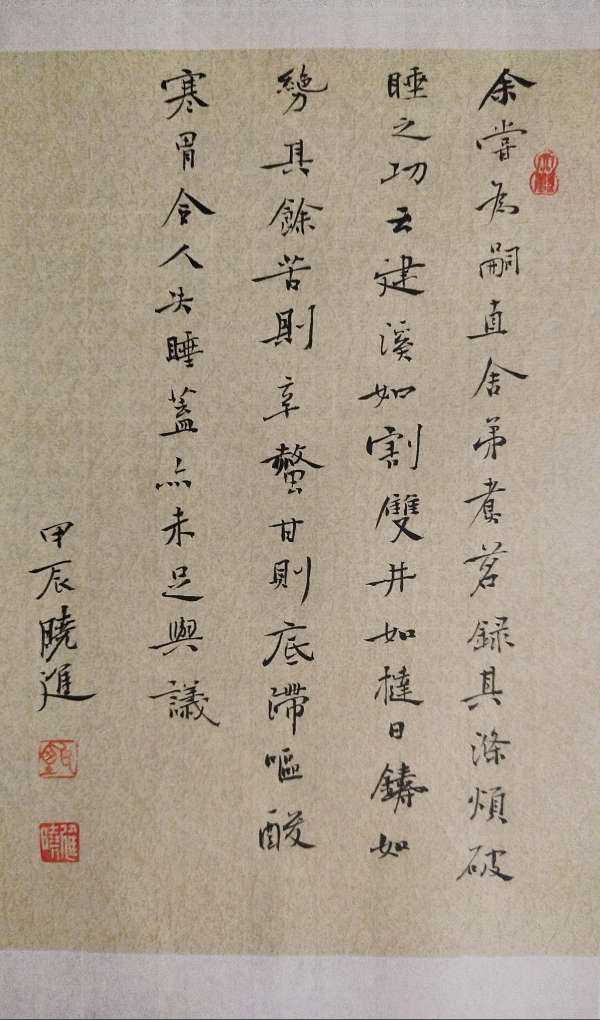 余嘗為嗣直舍弟煮茗録其滌煩破
睡之功云建溪如割雙井如撻日鑄如
其餘苦則辛螫甘則底滯嘔酸
寒胃令人失睡蓋亦未足與議
甲辰曉進